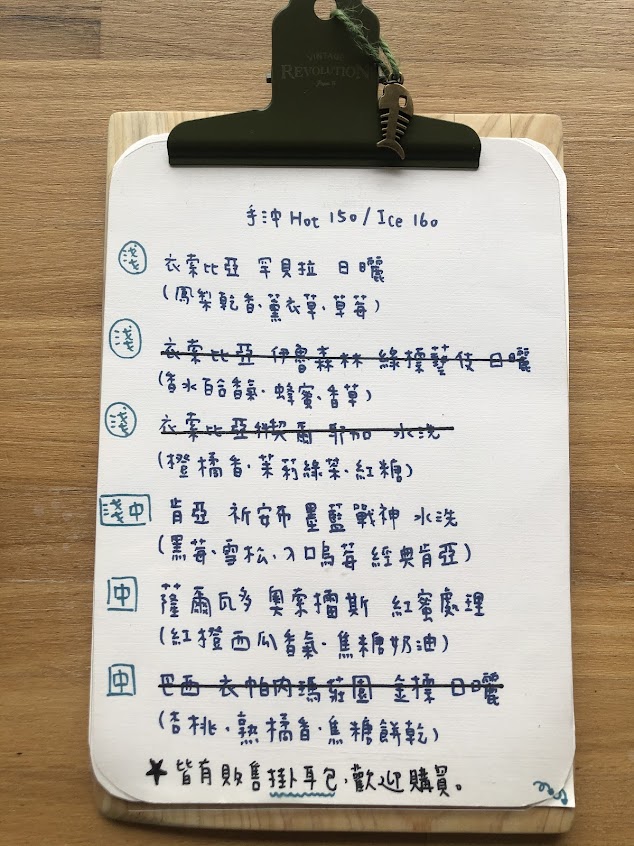 VINTAGE
REVOLUTION
手沖 Hot 150 / Ice 160
淺 衣索比亞 罕貝拉 日曬
(鳳梨乾香、薰衣草、草莓)
淺 衣索比亞 伊魯森林 綠標藝伎 日曬
(香水百合香氣、蜂蜜、香草)
淺 衣索比亞 耶加 水洗
(橙橘香、茉莉綠茶、紅糖)
淺中 肯亞 祈安布 墨藍戰神 水洗
(黑莓、雪松、入口烏莓 經典肯亞)
中 薩爾瓦多 奧索擂斯 紅蜜處理
(紅橙西瓜香氣、焦糖奶油)
中 巴西 衣帕內瑪莊園 金標 日曬
(杏桃、熟橘香、焦糖餅乾)
★ 皆有販售掛耳包,歡迎購買。